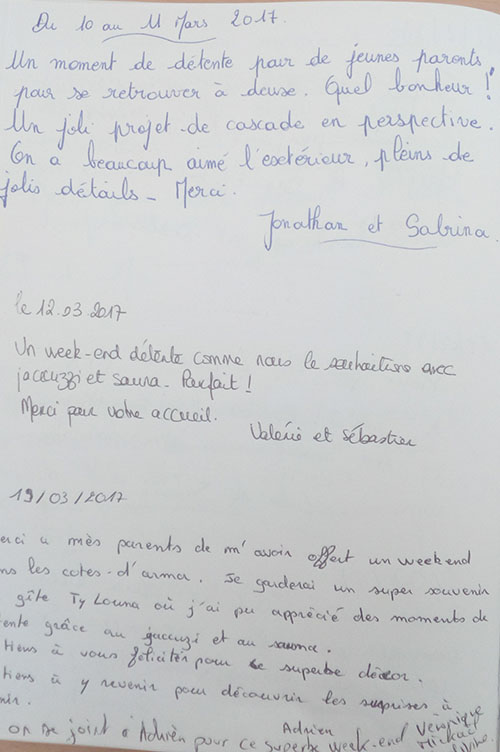 Du 10 au 11 Mars 2017.
Un moment de détente pour de jeunes parents
pour se retrouver à deuse. Quel bonheur !
Un joli projet de cascade en perspective.
On a beaucoup aimé l'esctérieur, pleins de
jolis détails - Merci.
Jonathan et Sabrina.
le 12.03.2017
Un week-end détente comme nous le souhaitions avec
jaccuzzi et sauna. Parfait !
Merci pour votre accueil.
Valérie et Sébastien
19/03/2017
erci a mès parents de m'avoir offert un weekend
ns les cotes-d'armor. Je garderai un super souvenir
gîte Ty Louna où j'ai pu apprécié des moments de
ente grâce au jaccuzi et au sauna.
tiens à vous féliciter pour le superbe décor.
tiens à y revenir pour découvrir les surprises à
nir.
Adrien
Véronique
on se joint à Adrien pour ce superbe week-end
Mickaël